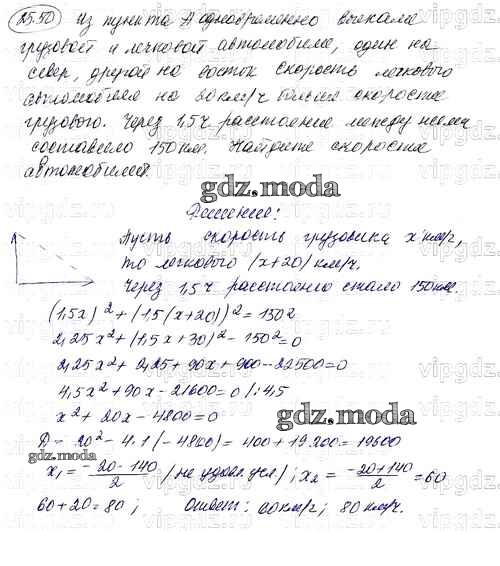 25.50 Из пункта А одновременно выехали
грузовой и легковой автомобили, один на
север, другой на восток скорость легкового
автомобиля на 20 км/ч больше скорости
грузового. Через 1,5 ч расстояние между ними
составляло 150 км. Найдите скорости
автомобилей.
gdz.moda
Решение:
Пусть скорость грузовика х км/ч,
то легкового (х+20) км/ч.
Через 1,5 ч расстояние стало 150 км
(1,5х)² + (1,5(х+20))² = 150²
2,25х² + (1,5х+30)² - 150² = 0
2,25х² + 2,25 + 90х + 900 - 22500 = 0
4,5х² + 90х - 21600 = 0 /: 4,5
х² + 20х - 4800 = 0
gdz.moda
D = 20² - 4·1·(-4800) = 400 + 19200 = 19600
gdz.moda
х₁ = (-20-140)/2 (не удовл. усл); х₂ = (-20+140)/2 = 60
60 + 20 = 80; Ответ: 60 км/ч; 80 км/ч.